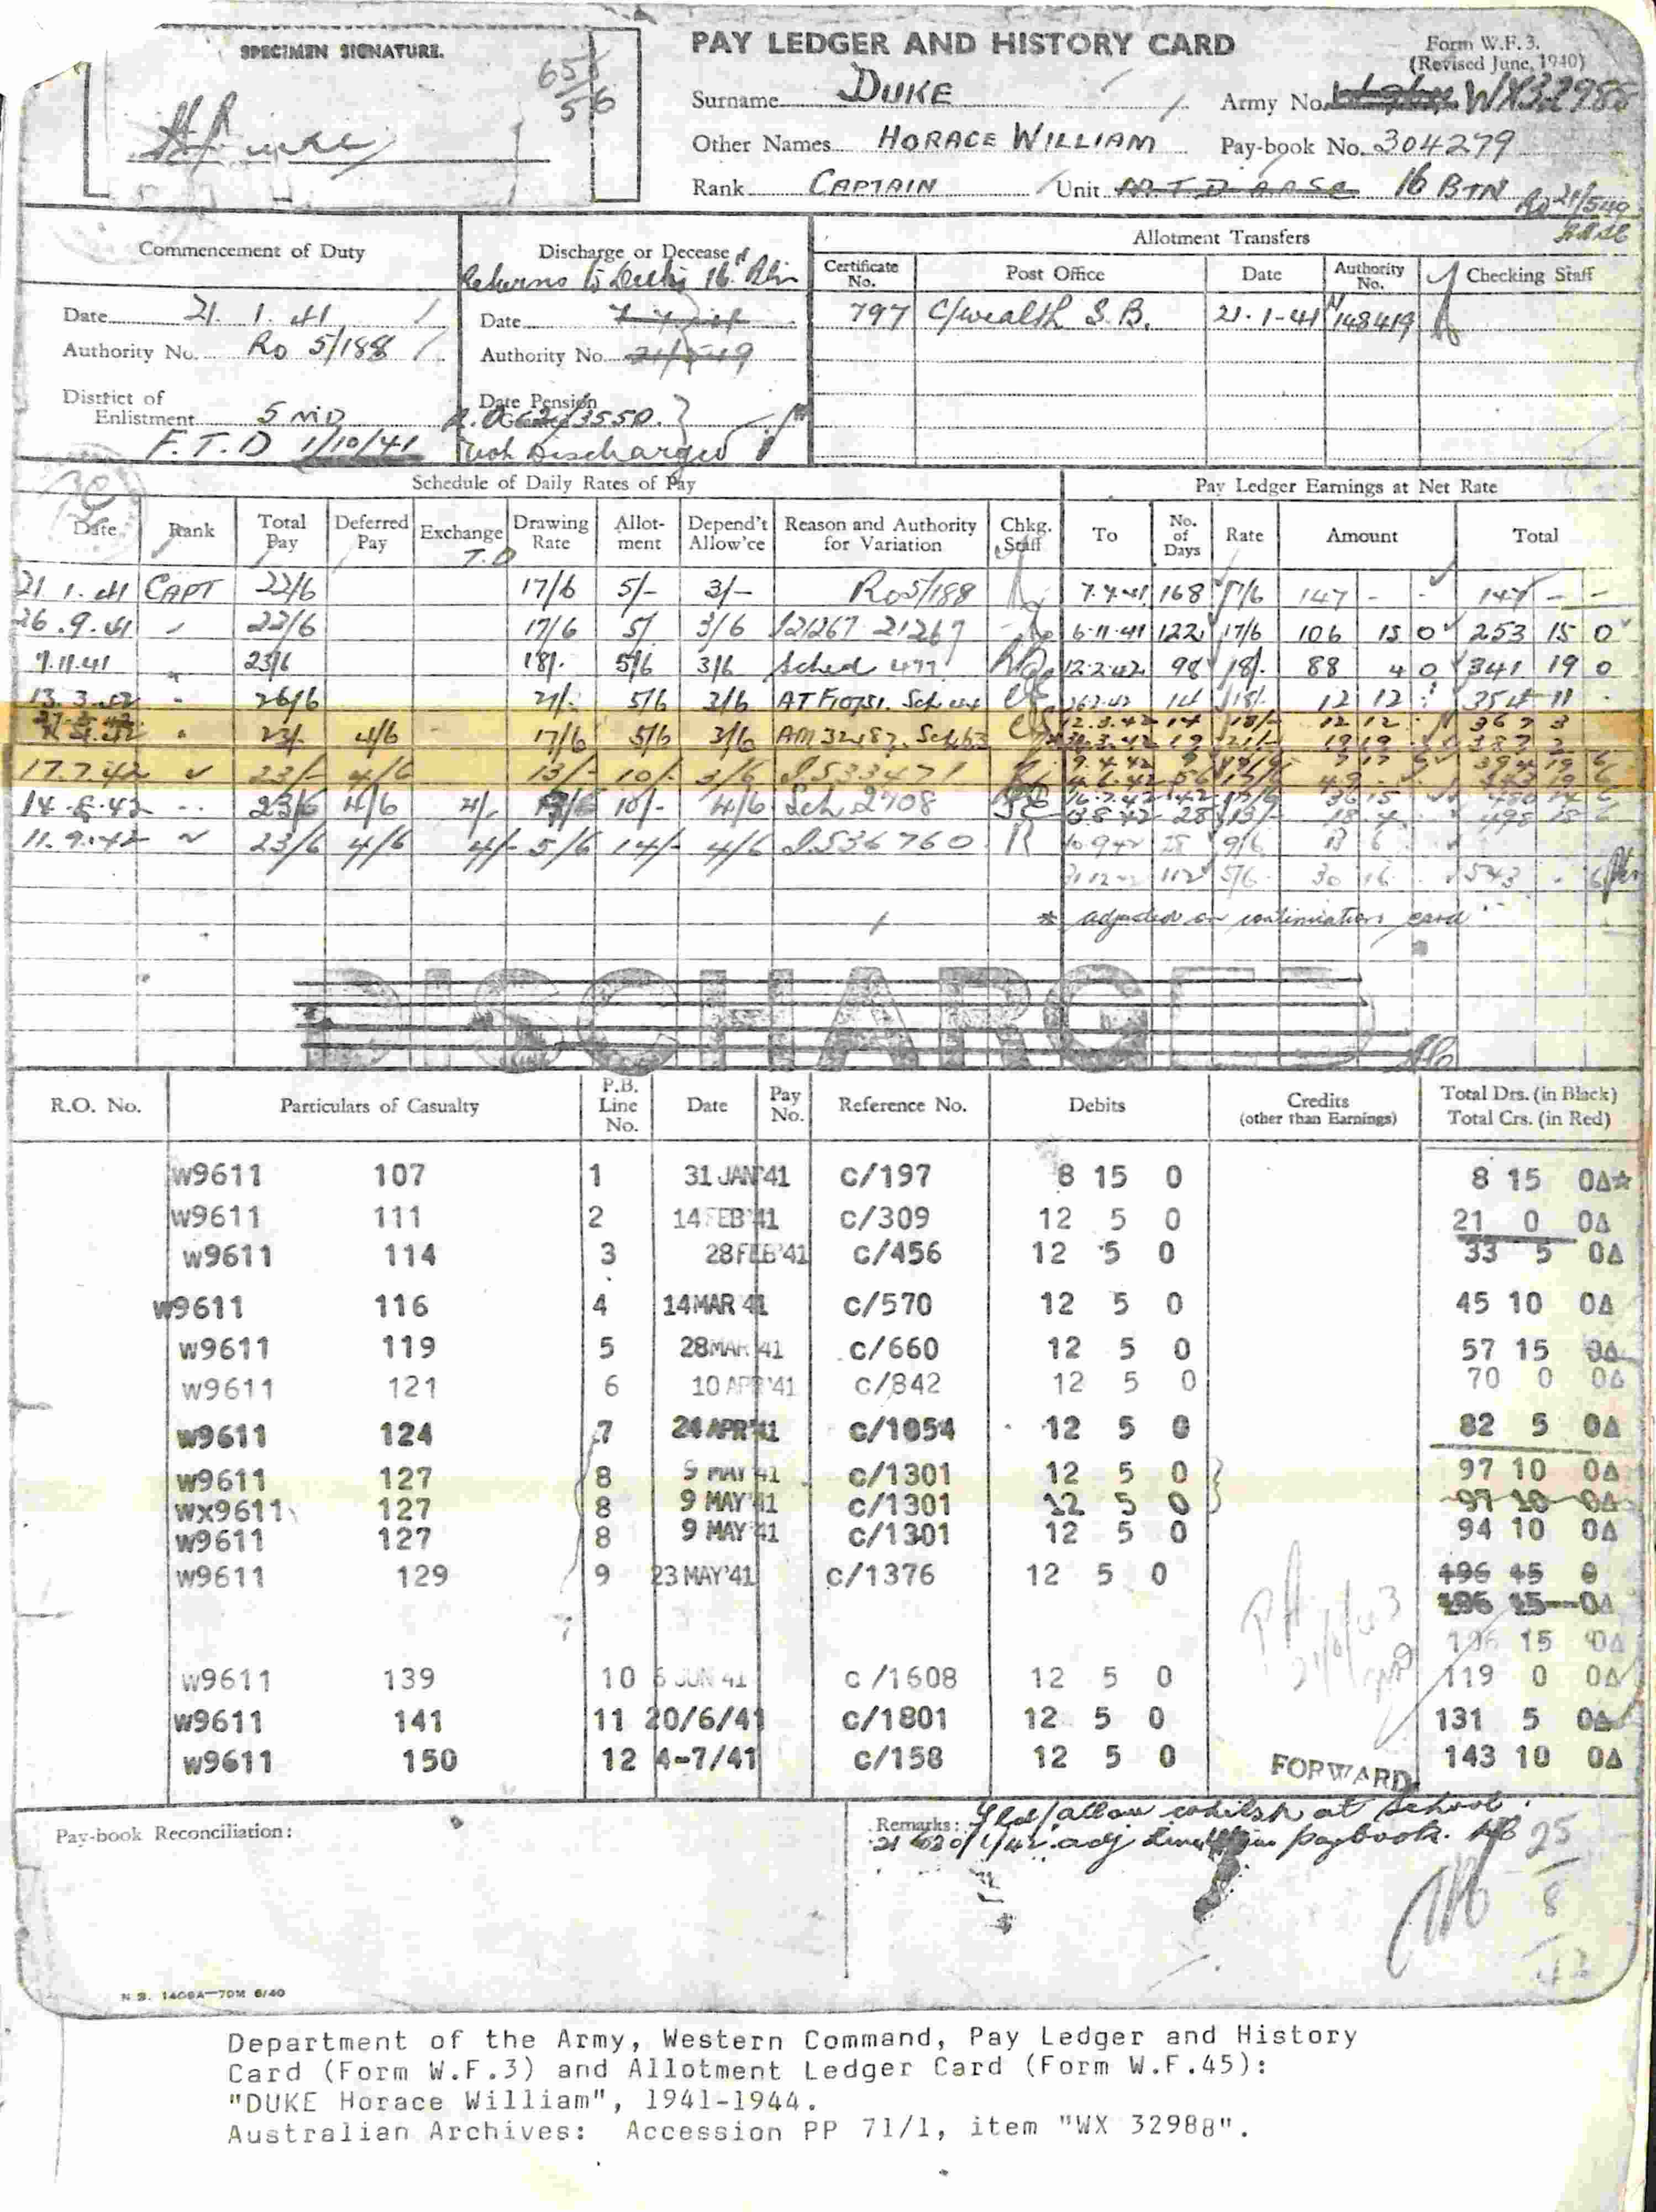 SPECIMEN SIGNATURE.
PAY LEDGER AND HISTORY CARD
Form W.F.3.
(Revised June, 1940)
Surname DUKE Army No. WX32988
Other Names HORACE WILLIAM Pay-book No. 304279
Rank CAPTAIN Unit M.T.D A.A.S.C 16 BTN
Commencement of Duty
Date 21. 1. 41
Authority No. Ro 5/188
District of
Enlistment 5 MD
F.T.D 1/10/41
Discharge or Decease
Returns to Duty 16 Btn
Date
Authority No. 21/549
Date Pension
3550.
not Discharged
Allotment Transfers
Certificate No. Post Office Date Authority No. Checking Staff
797 C/wealth S.B. 21-1-41 148419
Schedule of Daily Rates of Pay Pay Ledger Earnings at Net Rate
Date Rank Total Pay Deferred Pay Exchange Drawing Rate Allot-ment Depend't Allow'ce Reason and Authority for Variation Chkg. Staff To No. of Days Rate Amount Total
T.D
21. 1. 41 CAPT 22/6 17/6 5/- 3/- Ro 5/188 7.7.41 168 17/6 147 - - 147 - -
26.9.41 " 22/6 17/6 5/ 3/6 21267 6.11.41 122 17/6 106 15 0 253 15 0
7.11.41 " 23/6 18/. 5/6 3/6 Sched 477 12.2.42 98 18/. 88 4 0 341 19 0
13.3.42 " 26/6 21/. 5/6 3/6 14 18/. 12 12 354 11
23/. 4/6 17/6 5/6 3/6 12.3.42 14 18/- 12 12 367 3
19 21/- 19 19 387 2
17.7.42 " 23/- 4/6 13/- 10/- 3/6 I.533471
14.8.42 " 23/6 4/6 4/ 10/- 4/6 Sch 2708 28 13/- 18 4 498 18 6
11.9.42 " 23/6 4/6 4/- 5/6 14/- 4/6 I.536760 R 10.9.42 28 9/6 13 6
31.12.42 112 5/6 30 16 543 - 6
* adjusted on continuation card
DISCHARGED
R.O. No. Particulars of Casualty P.B. Line No. Date Pay No. Reference No. Debits Credits (other than Earnings) Total Drs. (in Black) Total Crs. (in Red)
W9611 107 1 31 JAN '41 C/197 8 15 0 8 15 0∆☆
W9611 111 2 14 FEB '41 C/309 12 5 0 21 0 0∆
W9611 114 3 28 FEB '41 C/456 12 5 0 33 5 0∆
W9611 116 4 14 MAR '41 C/570 12 5 0 45 10 0∆
W9611 119 5 28 MAR '41 C/660 12 5 0 57 15 0∆
W9611 121 6 10 APR '41 C/842 12 5 0 70 0 0∆
W9611 124 7 24 APR '41 C/1054 12 5 0 82 5 0∆
W9611 127 8 9 MAY '41 C/1301 12 5 0 97 10 0∆
WX9611 127 8 9 MAY '41 C/1301 12 5 0 97 10 0∆
W9611 127 8 9 MAY '41 C/1301 12 5 0 94 10 0∆
W9611 129 9 23 MAY '41 C/1376 12 5 0 196 15 0
196 15 0∆
196 15 0∆
W9611 139 10 6 JUN '41 C/1608 12 5 0 119 0 0∆
W9611 141 11 20/6/41 C/1801 12 5 0 131 5 0∆
W9611 150 12 4-7/41 C/158 12 5 0 143 10 0∆
FORWARD
Pay-book Reconciliation:
Remarks: Fld/allow whilst at School.
paybook.
25
8
42
N.S. 1409A—70M 6/40
Department of the Army, Western Command, Pay Ledger and History
Card (Form W.F.3) and Allotment Ledger Card (Form W.F.45):
"DUKE Horace William", 1941-1944.
Australian Archives: Accession PP 71/1, item "WX 32988".